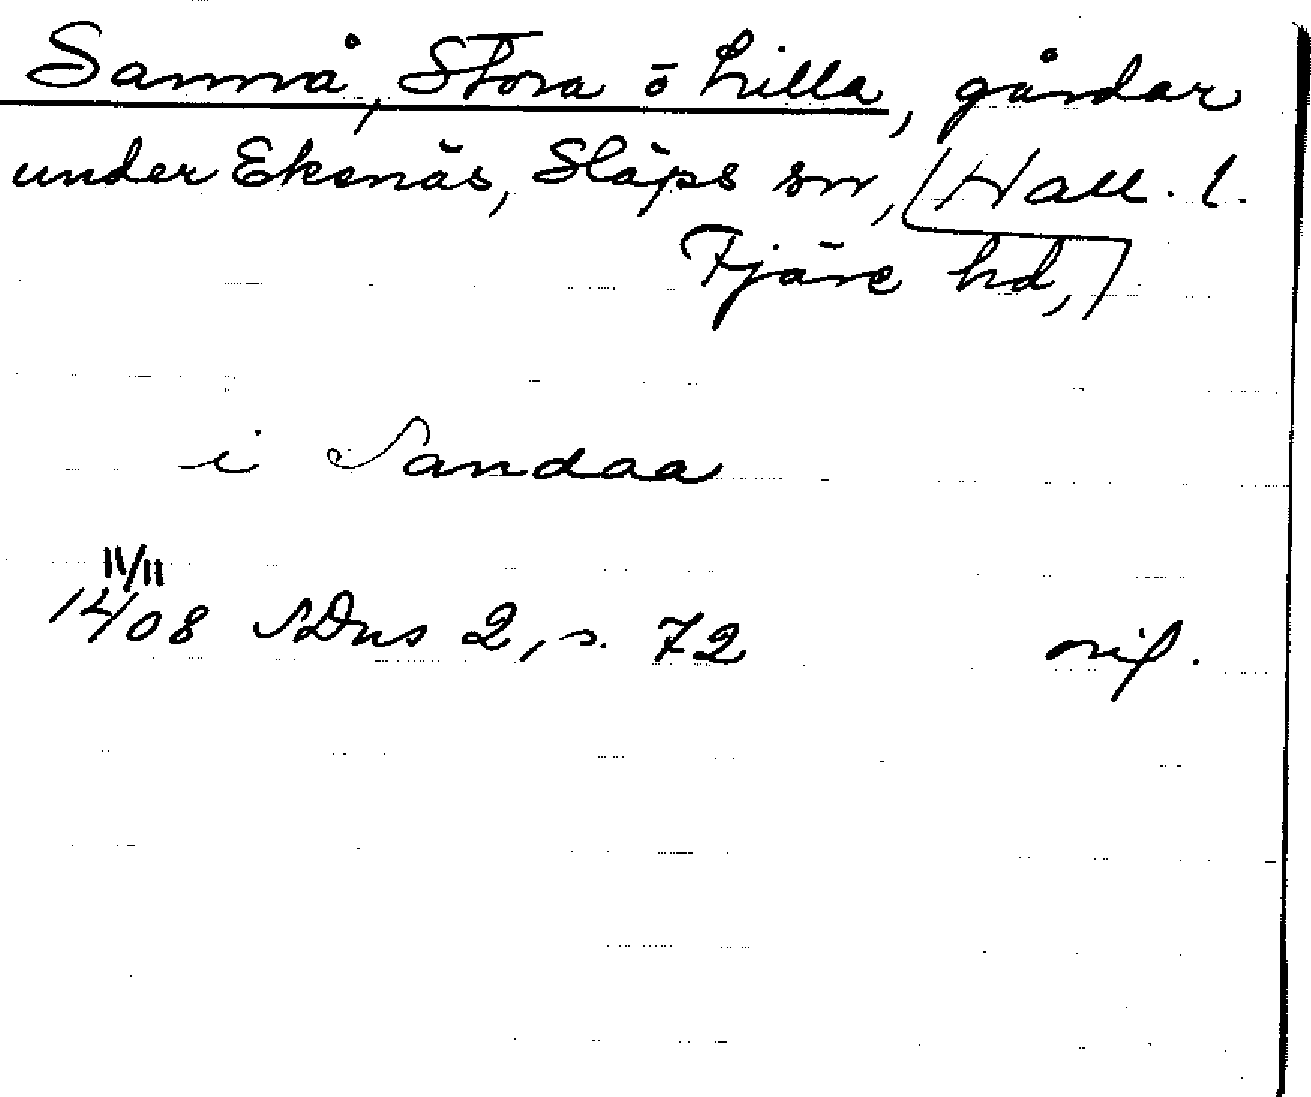 Sannå, Stora o Lilla, gårdar
under Eksnäs, Släps sn, Hall. l.
Fjäre hd,
i Sandaa
11/11
1408 SDns 2, s. 72 orig.